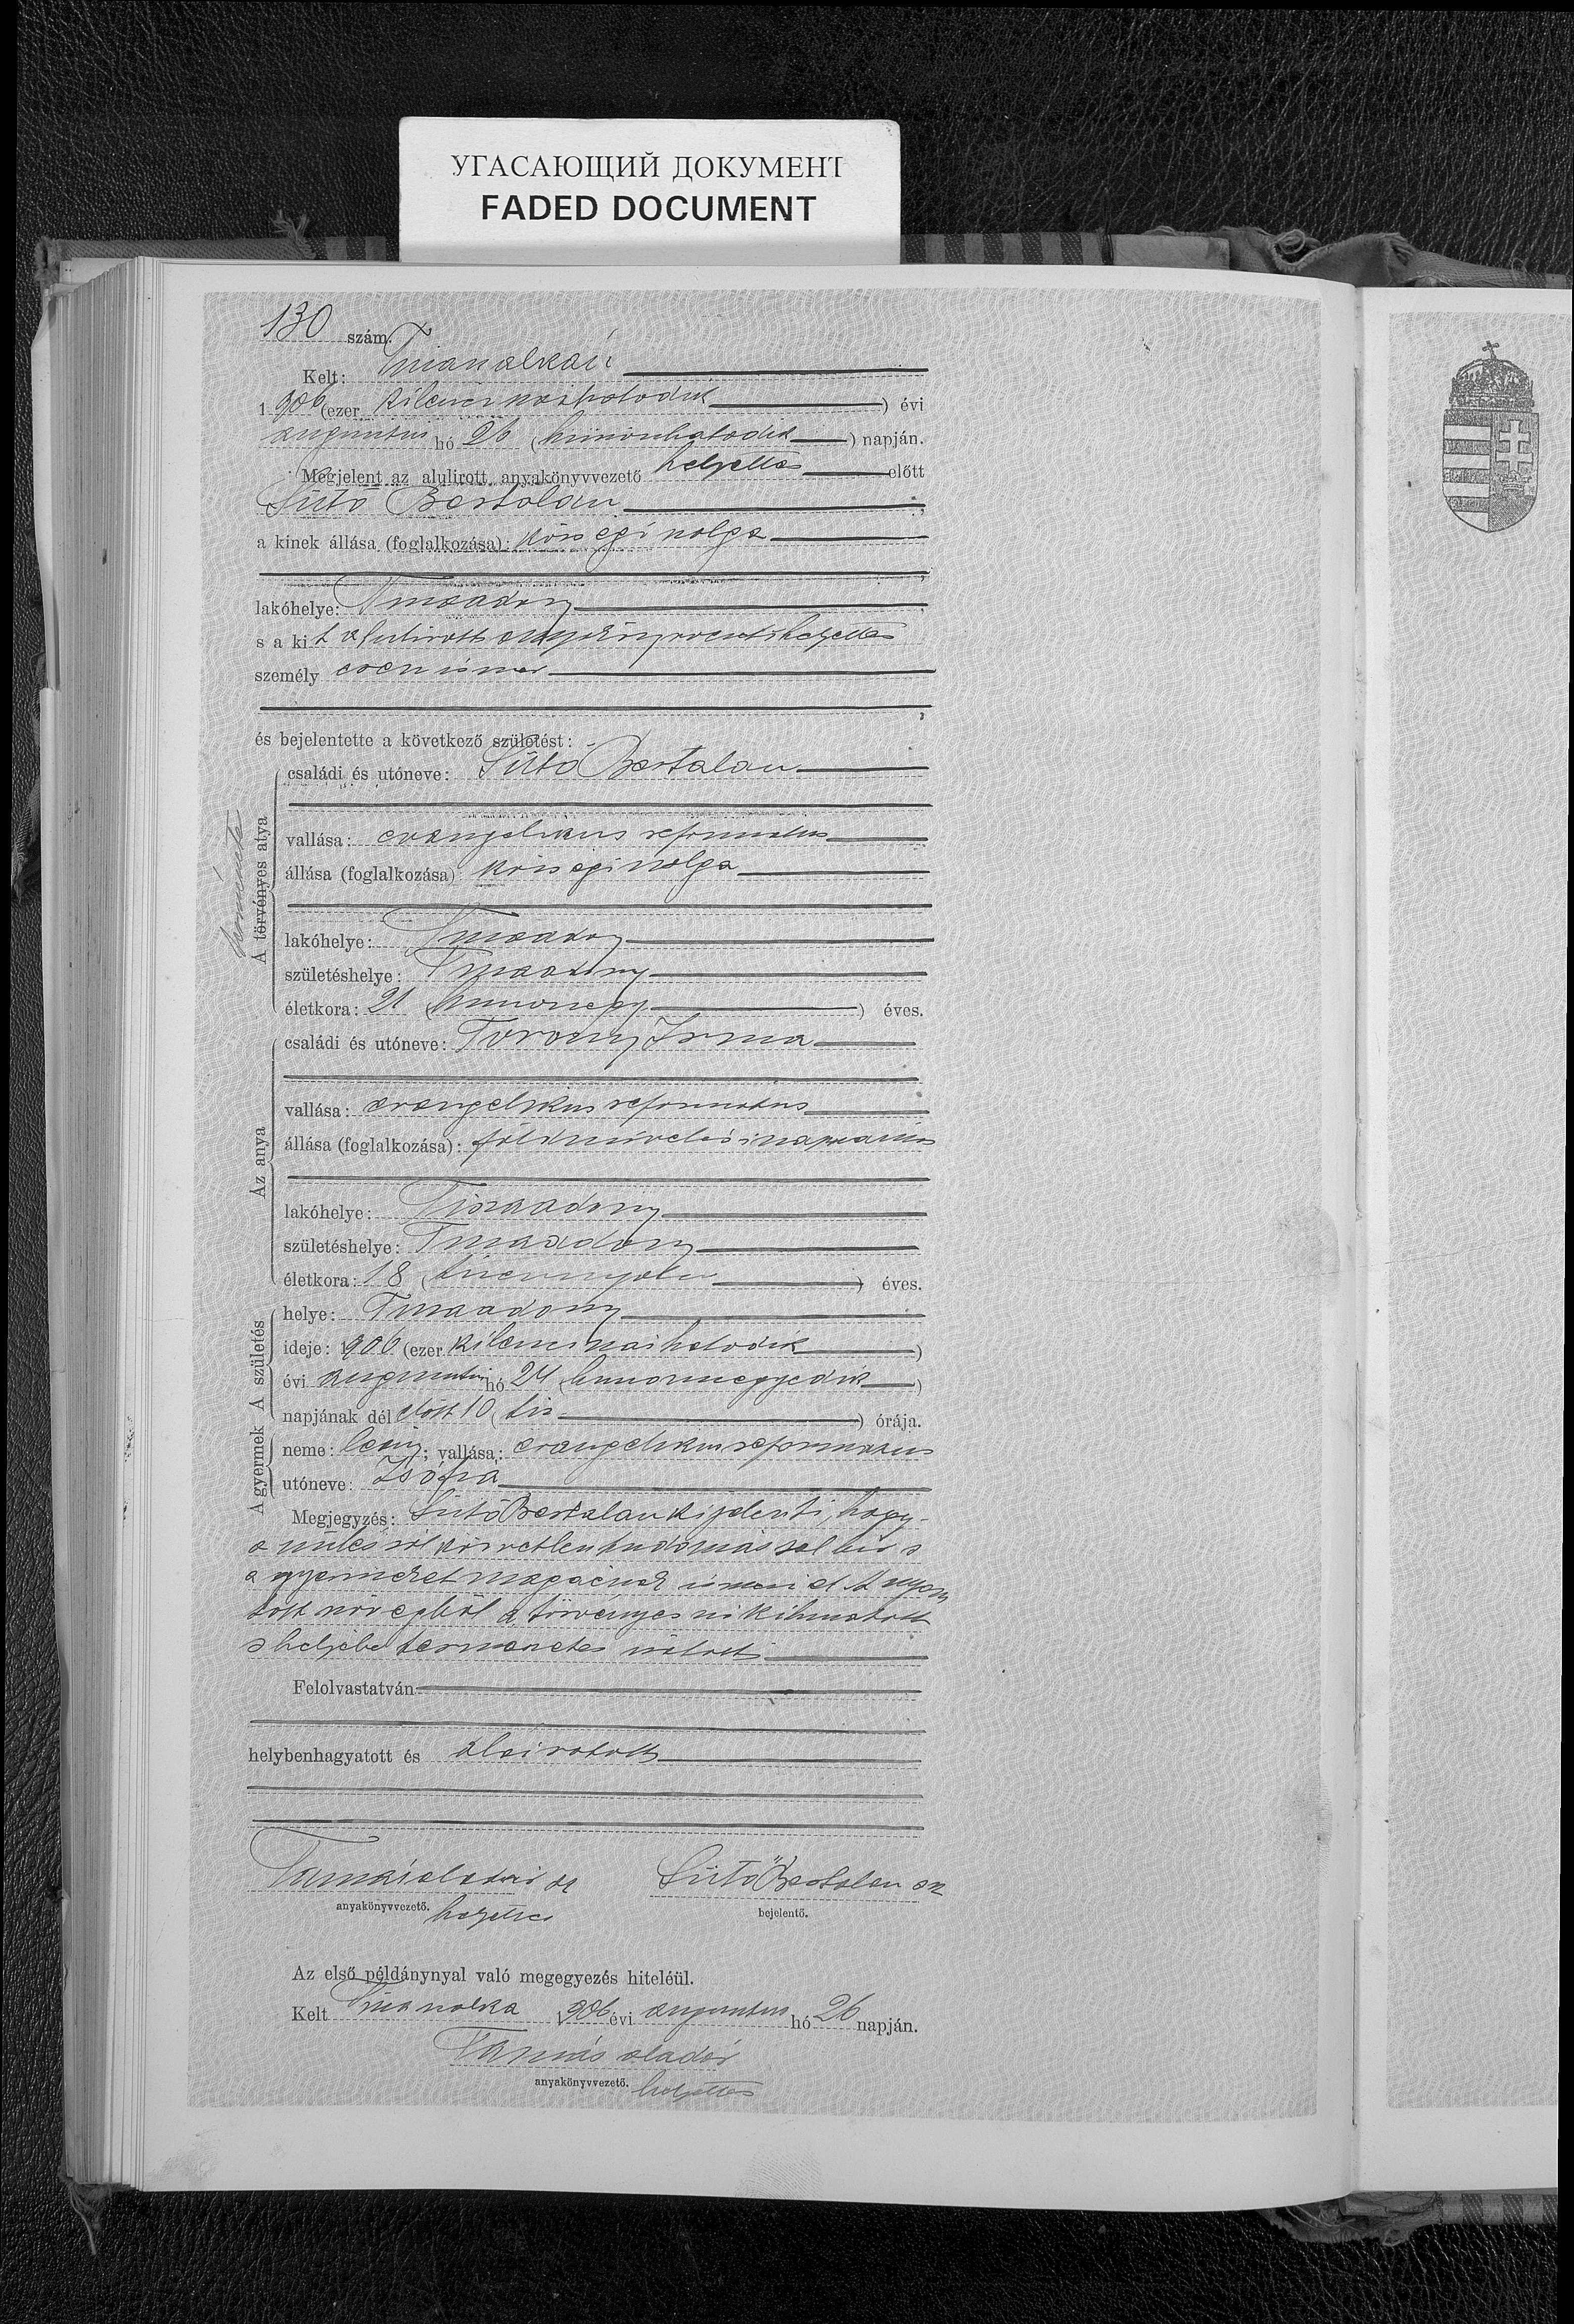 УГАСАЮЩИЙ ДОКУМЕНТ
FADED DOCUMENT
130 szám.
Kelt:
1 906 (ezer kilenczszázhatodik) évi
augusztus hó 26 (huszonhatodik) napján.
Megjelent az alulirott anyakönyvvezető helyettes előtt
Sütő Bertalan,
a kinek állása (foglalkozása): községi szolga
lakóhelye: Tiszaadony
s a kit alulirott anyakönyvvezető helyettes
személyesen ismer
és bejelentette a következő születést:
természetes
A törvényes atya
családi és utóneve: Sütő Bertalan
vallása: evangelikus reformatus
állása (foglalkozása): községi szolga
lakóhelye: Tiszaadony
születéshelye: Tiszaadony
életkora: 21 (huszonegy) éves.
Az anya
családi és utóneve: Irma
vallása: evangelikus reformatus
állása (foglalkozása): földmívelési napszámos
lakóhelye: Tiszaadony
születéshelye: Tiszaadony
életkora: 18 (tizennyolcz) éves.
A születés
helye: Tiszaadony
ideje: 1906 (ezer kilenczszázhatodik)
évi augusztus hó 24 (huszonnegyedik)
napjának dél előtt 10 (tiz) órája.
A gyermek
neme: leány; vallása: evangelikus reformatus
utóneve: Zsófia
Megjegyzés: Sütő Bertalan kijelenti, hogy
a szülésről közvetlen tudomással bir s
a gyermeket magáénak ismeri el A nyom
tatt szövegből a törvényes szó kihuzatott
s helyébe természetes iratott
Felolvastatván
helybenhagyatott és aláiratott
Tamás Aladár
anyakönyvvezető. helyettes
Sütő Bertalan
bejelentő.
Az első példánynyal való megegyezés hiteléül.
Kelt 1906 évi augusztus hó 26 napján.
Tamás Aladár
anyakönyvvezető. helyettes